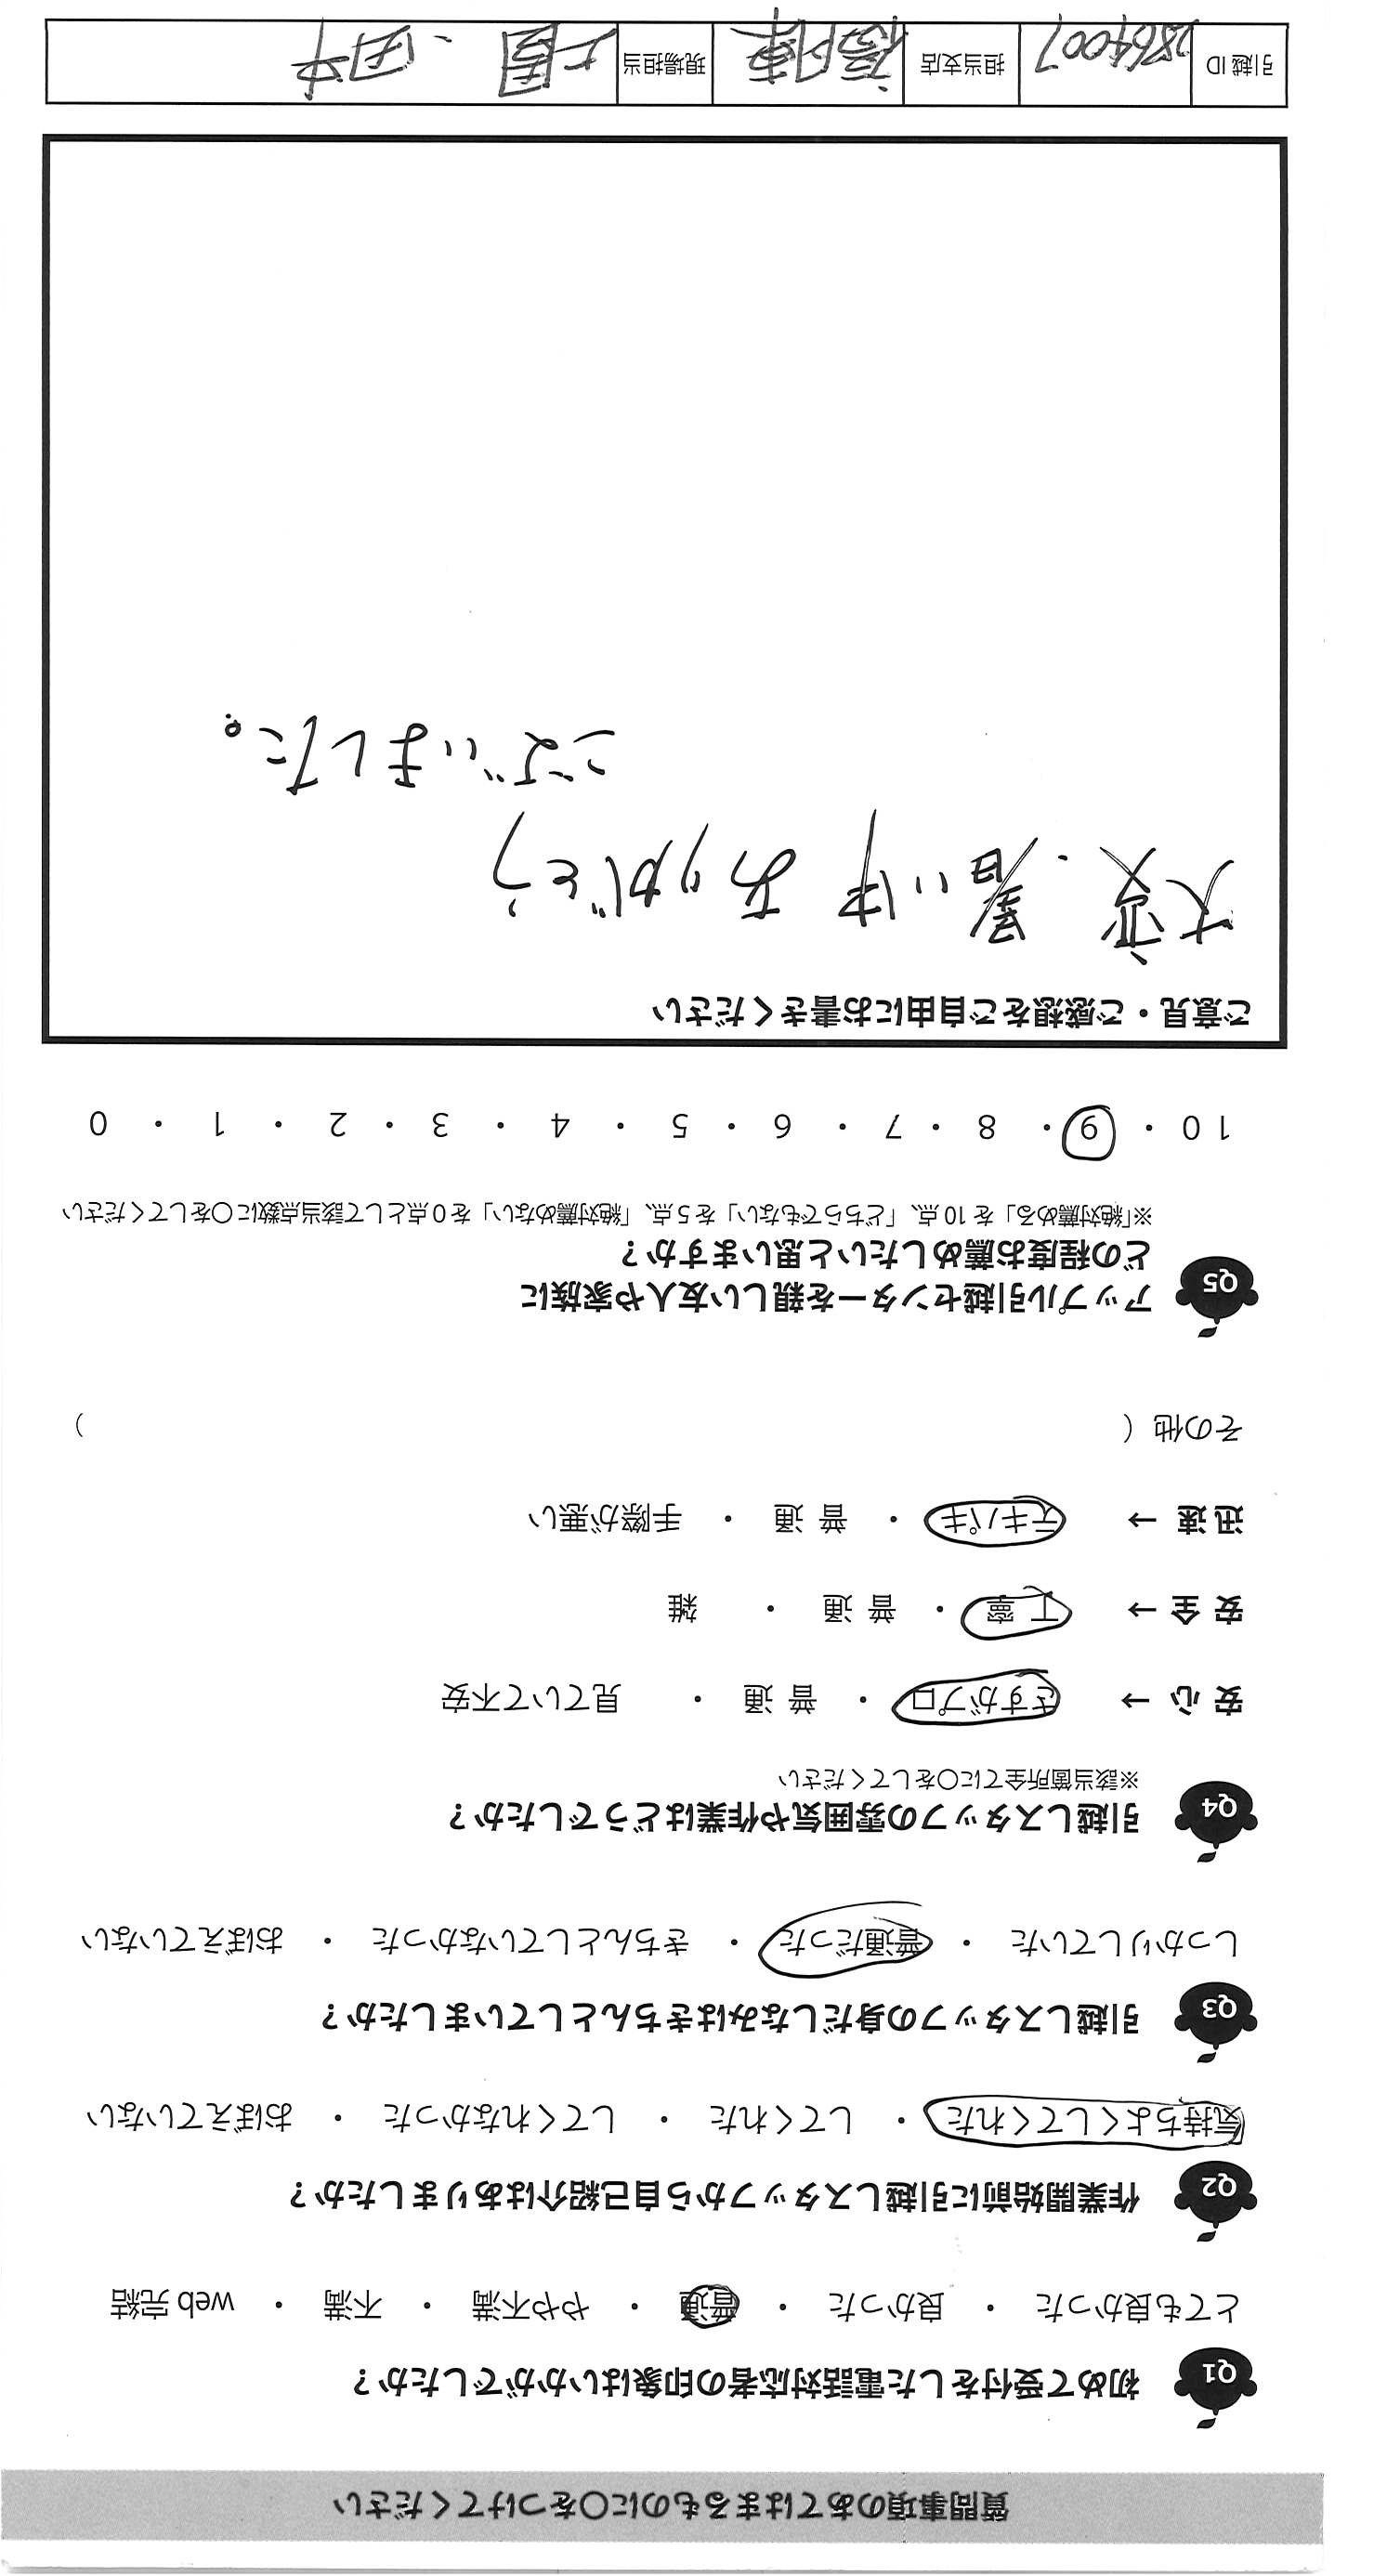 質問事項のあてはまるものに○をつけてください
Q1 初めて受付をした電話対応者の印象はいかがでしたか？
とても良かった ・ 良かった ・ 普通 ・ やや不満 ・ 不満 ・ web完結
Q2 作業開始前に引越しスタッフから自己紹介はありましたか？
気持ちよくしてくれた ・ してくれた ・ してくれなかった ・ おぼえていない
Q3 引越しスタッフの身だしなみはきちんとしていましたか？
しっかりしていた ・ 普通だった ・ きちんとしていなかった ・ おぼえていない
Q4 引越しスタッフの雰囲気や作業はどうでしたか？
※該当箇所全てに○をしてください
安心 → さすがプロ ・ 普通 ・ 見ていて不安
安全 → 丁寧 ・ 普通 ・ 雑
迅速 → テキパキ ・ 普通 ・ 手際が悪い
その他（ ）
Q5 アップル引越センターを親しい友人や家族に
どの程度お薦めしたいと思いますか？
※「絶対薦める」を10点、「どちらでもない」を5点、「絶対薦めない」を0点として該当点数に○をしてください
10 ・ 9 ・ 8 ・ 7 ・ 6 ・ 5 ・ 4 ・ 3 ・ 2 ・ 1 ・ 0
ご意見・ご感想をご自由にお書きください
大変．暑い中 ありがとう
ございました。
引越ID 担当支店 現場担当 上園．田中